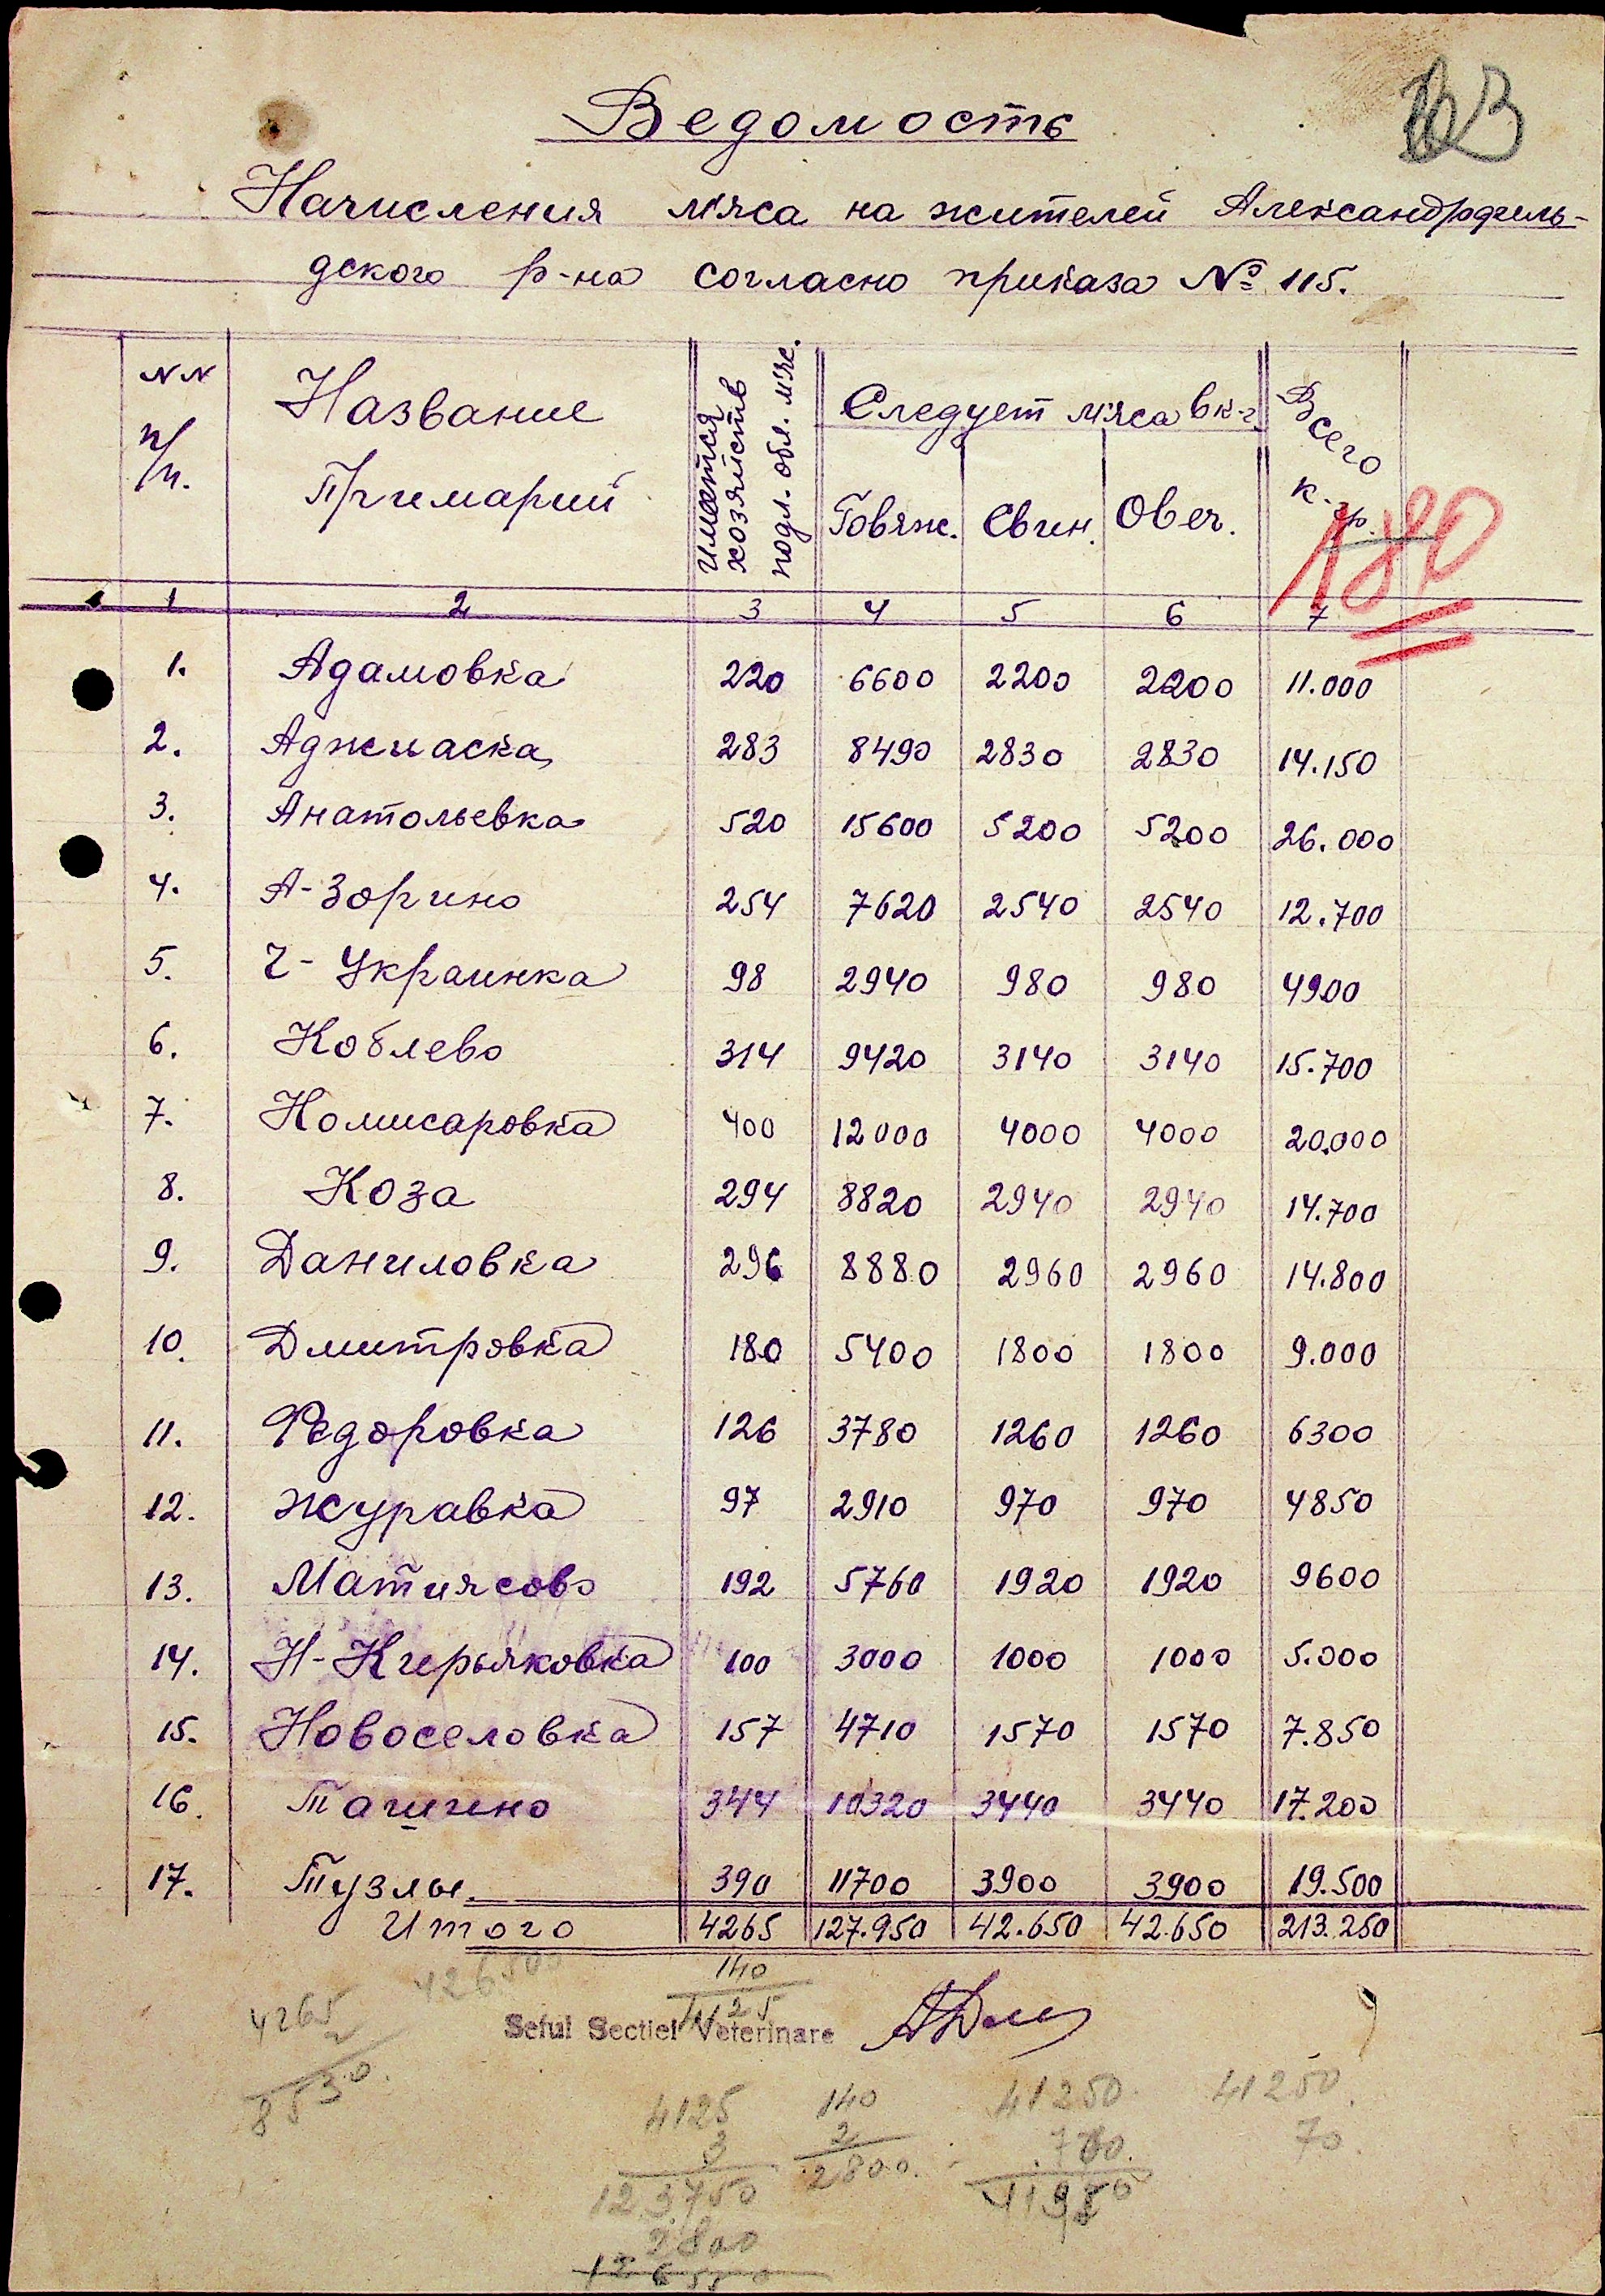 163
Ведомость
Начисления м'яса на жителей Александрфиль-
дского р-на согласно приказа № 115.
NN п/п. Название Примарий Имеется хозяйств подл. обл. м'яс. Следует м'яса в к-г. Всего к-гр.
Говяж. Свин. Овеч.
180
1 2 3 4 5 6 7
1. Адамовка 220 6600 2200 2200 11.000
2. Аджиаска 283 8490 2830 2830 14.150
3. Анатольевка 520 15600 5200 5200 26.000
4. А-Зорино 254 7620 2540 2540 12.700
5. Ч-Украинка 98 2940 980 980 4900
6. Коблево 314 9420 3140 3140 15.700
7. Комисаровка 400 12000 4000 4000 20.000
8. Коза 294 8820 2940 2940 14.700
9. Даниловка 296 8880 2960 2960 14.800
10. Дмитровка 180 5400 1800 1800 9.000
11. Федоровка 126 3780 1260 1260 6300
12. Журавка 97 2910 970 970 4850
13. Матиясово 192 5760 1920 1920 9600
14. Н-Кирьяковка 100 3000 1000 1000 5.000
15. Новоселовка 157 4710 1570 1570 7.850
16. Ташино 344 10320 3440 3440 17.200
17. Тузлы. 390 11700 3900 3900 19.500
Итого 4265 127.950 42.650 42.650 213.250
426500 140
4265 4125
2
8530.
Seful Sectiei Veterinare
4125 140 41250. 41250.
3 2 700. 70.
123750 2800.
2800